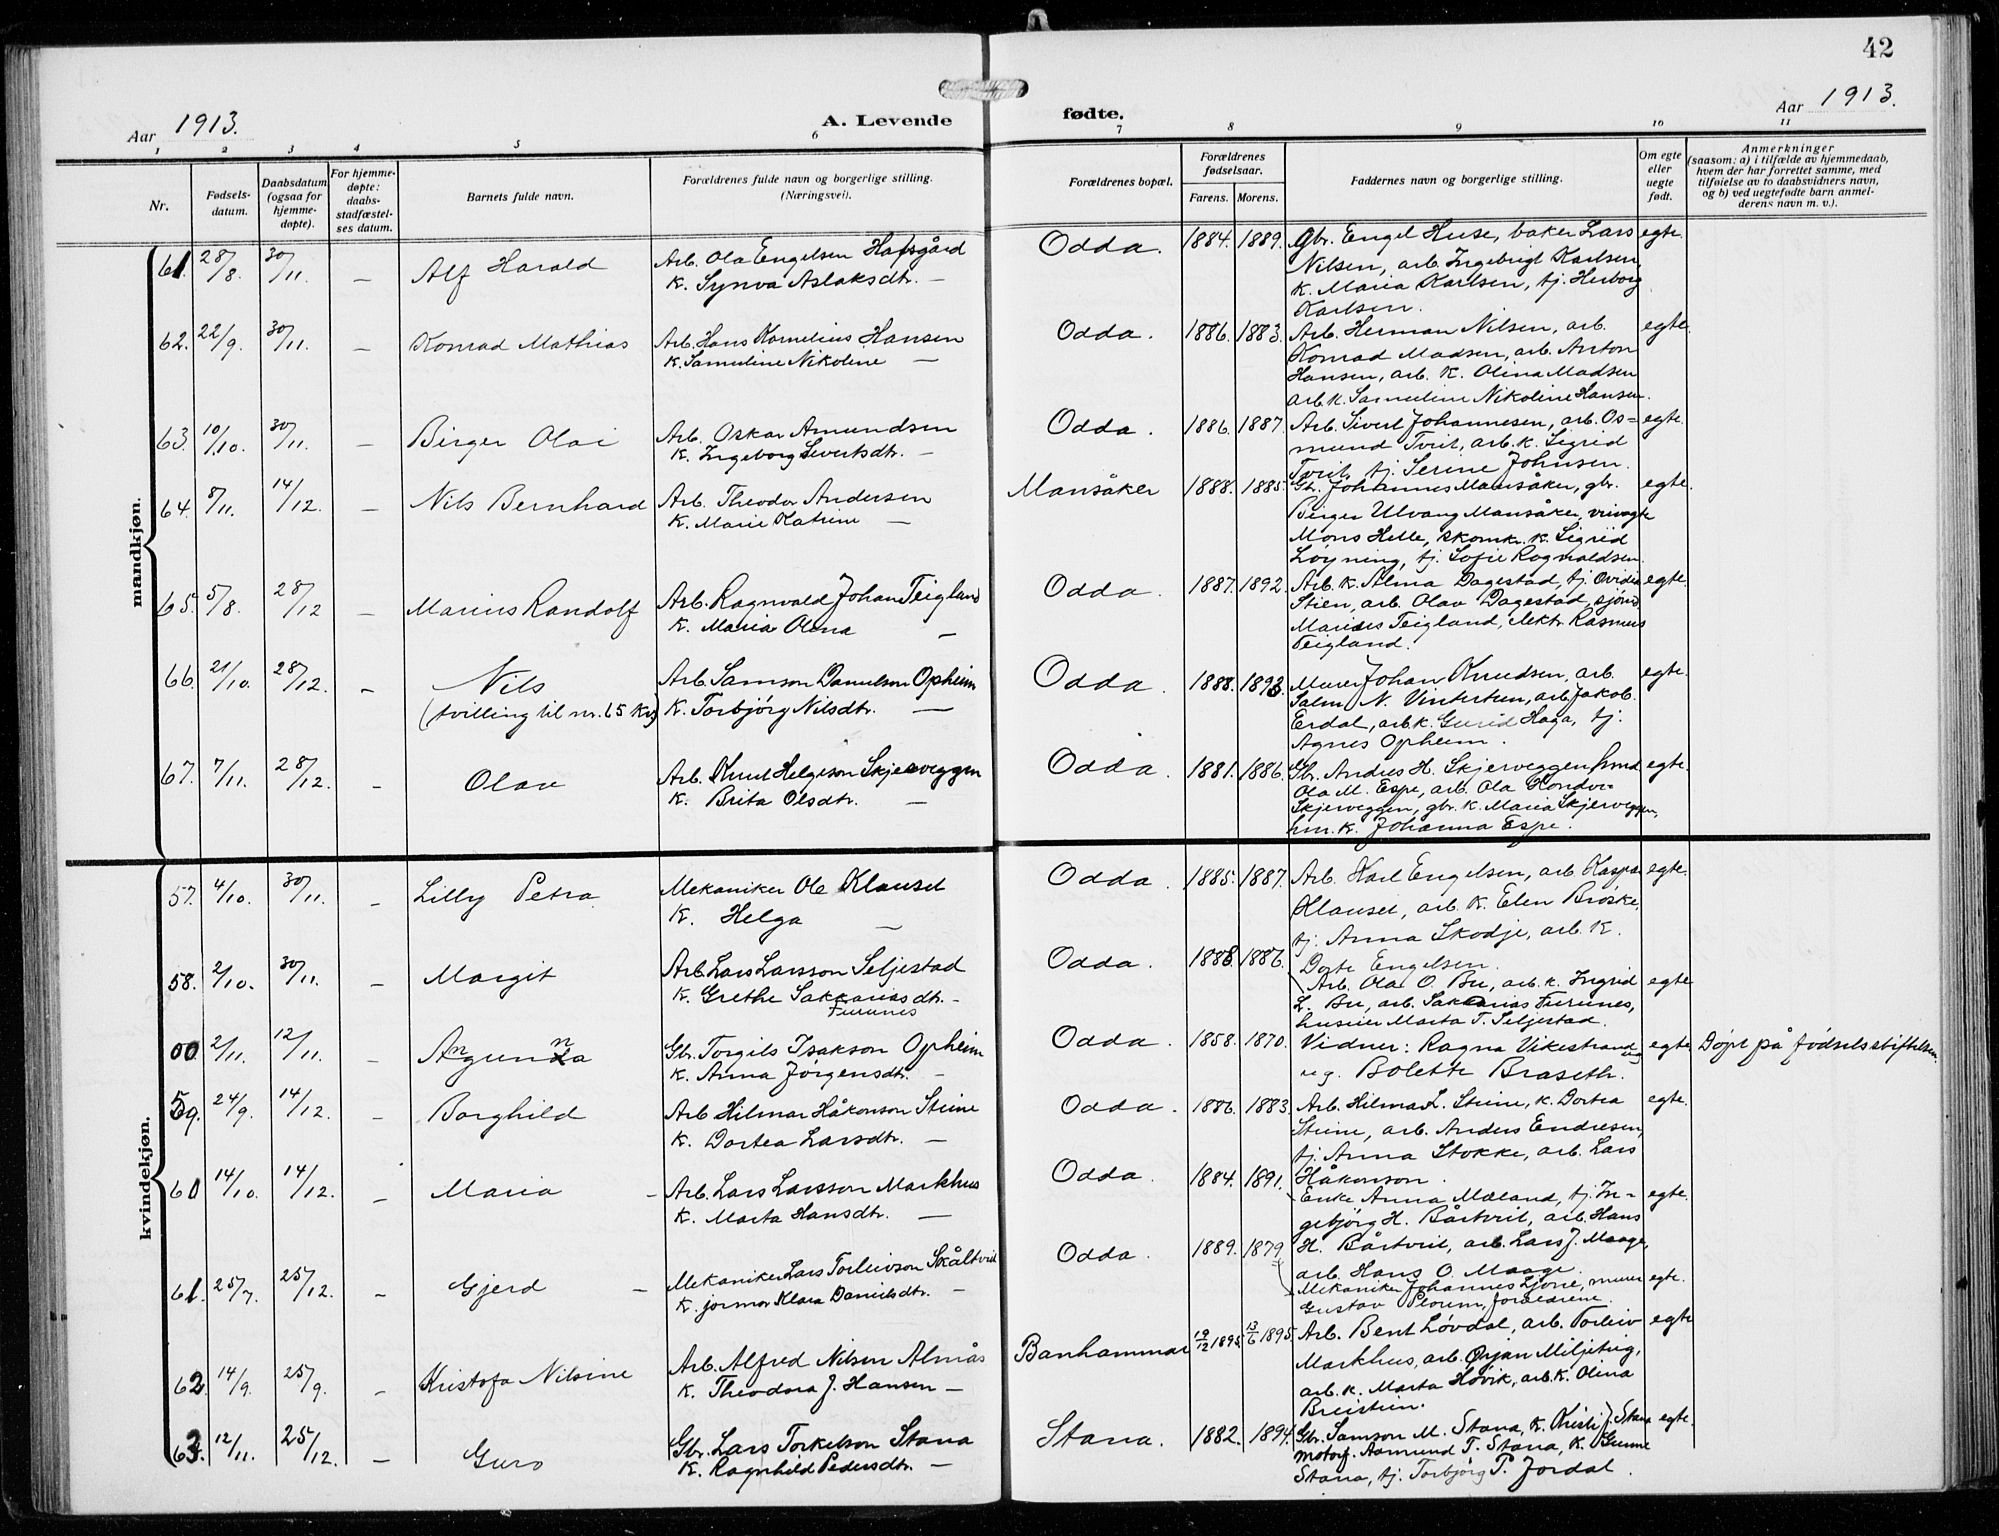 42
Aar 1913.
A. Levende fødte.
Aar 1913.
1 2 3 4 5 6 7 8 9 10 11
Nr.
Fødsels-
datum.
Daabsdatum
(ogsaa for
hjemme-
døpte).
For hjemme-
døpte:
daabs-
stadfæstel-
ses datum.
Barnets fulde navn.
Forældrenes fulde navn og borgerlige stilling.
(Næringsvei).
Forældrenes bopæl.
Forældrenes
fødselsaar.
Farens. Morens.
Faddernes navn og borgerlige stilling.
Om egte
eller
uegte
født.
Anmerkninger
(saasom: a) i tilfælde av hjemmedaab,
hvem der har forrettet samme, med
tilføielse av to daabsvidners navn,
og b) ved uegtefødte barn anmel-
derens navn m. v.).
mandkjøn.
61. 28/8. 30/11. – Alf Harald
Arb. Ola Engelsen Hafsgård
K. Synva Aslaksdtr. –
Odda. 1884. 1889.
Gbr. Engel Huse, baker Lars
Nilsen, arb. Ingebrigt Karlsen,
K. Maria Karlsen, tj. Herborg
Karlsen.
egte.
62. 22/9. 30/11. – Konrad Mathias
Arb. Hans Kornelius Hansen
K. Samueline Nikolene –
Odda. 1886. 1883.
Arb. Herman Nilsen, arb.
Konrad Madsen, arb. Anton
Hansen, arb. K. Olina Madsen
arb. K. Samueline Nikoline Hansen.
egte.
63. 10/10. 30/11. – Birger Olai
Arb. Oskar Amundsen
K. Ingeborg Sivertsdtr. –
Odda. 1886. 1887.
Arb. Sivert Johannesen, arb. Os=
mund Tveit, arb. K. Sigrid
Tveit, tj. Serine Johnsen.
egte.
64. 8/11. 14/12. – Nils Bernhard
Arb. Theodor Andersen
K. Marie Katrine –
Mansåker 1888. 1885.
Gbr. Johannes Mansåker, gbr.
Birger Ulvang Mansåker,
Mons Helle, skomk. K. Sigrid
Løyning, tj. Sofie Ragnvaldsen.
egte.
65. 5/8. 28/12 – Marius Randolf
Arb. Ragnvald Johan Teigland
K. Maria Olena –
Odda. 1887. 1892.
Arb. K. Alma Dagestad, tj. Ovidia
Stien, arb. Olav Dagestad, sjömd.
Marius Teigland, elektr. Rasmus
Teigland.
egte.
66. 21/10. 28/12. – Nils
(tvilling til nr. 65 Kv.)
Arb. Samson Danielson Opheim
K. Torbjörg Nilsdtr. –
Odda. 1888. 1893.
Murer Johan Knudsen, arb.
Salm. N. Vintertun, arb. Jakob
Erdal, arb. K. Gurid Haga, tj.
Agnes Opheim.
egte.
67. 7/11. 28/12. – Olav
Arb. Knut Helgeson Skjerveggen
K. Brita Olsdtr. –
Odda. 1881. 1886.
Gbr. Andres H. Skjerveggen,
Ola M. Espe, arb. Ola
Skjerveggen, gbr. K. Maria Skjerveggen,
hm. K. Johanna Espe.
egte.
kvindekjøn.
57. 4/10. 30/11. – Lilly Petra
Mekaniker Ole Klauset
K. Helga –
Odda. 1885. 1887.
Arb. Karl Engelsen, arb. Kaspar
Klauset, arb. K. Elen Brøske,
tj. Anna Skodje, arb. K.
Dorte Engelsen.
egte.
58. 2/10. 30/11. – Margit
Arb. Lars Larsson Seljestad
K. Grethe Sakkariasdtr. –
Furunes
Odda. 1888. 1886.
Arb. Ola O. Bu, arb. K. Ingrid
L. Bu, arb. Sakarias Furunes,
husier Marta T. Seljestad.
egte
00 2/11. 12/11. – Angunna
Gbr. Torgils Isakson Opheim
K. Anna Jörgensdtr. –
Odda. 1858. 1870.
Vidner: Ragna Vikestrand ug
ug. Bolette Braseth.
egte. Døpt på fødselsstiftelsen.
59. 24/9. 14/12. – Borghild
Arb. Hilmar Håkonson Steine
K. Dortea Larsdtr. –
Odda. 1886. 1883.
Arb. Hilmar L. Steine, K. Dortea
Steine, arb. Anders Endresen,
tj. Anna Stokke, arb. Lars
Håkonson.
egte.
60 14/10. 14/12. – Maria –
Arb. Lars Larsson Markhus
K. Marta Hansdtr. –
Odda. 1884. 1891.
Enke Anna Mæland, tj. In=
gebjörg H. Bårtveit, arb. Hans
H. Bårtveit, arb. Lars J. Maage,
arb. Hans O. Maage.
egte.
61. 25/7. 25/12. – Gjerd –
Mekaniker Lars Torleivson Skåltveit
K. jormor Klara Danielsdtr. –
Odda. 1889. 1879
Mekaniker Johannes Ljone, murer
Gustav Plorum, forældrene.
egte.
62 14/9. 25/9. – Kristofa Nilsine
Arb. Alfred Nilsen Almås
K. Theodora J. Hansen –
Banhammar 19/12 1895. 13/6 1895.
Arb. Bent Løvdal, arb. Torleiv
Markhus, arb. Ørjan Miljeteig,
arb. K. Marta Høvik, arb. K. Olina
Breistein.
egte
63. 12/11. 25/12. – Guro
Gbr. Lars Torkelson Stana
K. Ragnhild Pedersdtr. –
Stana. 1882. 1894.
Gbr. Samson M. Stana, K. Kristi J. Stana
motorf. Aamund T. Stana, K. Gunne
Stana, tj. Torbjörg P. Jordal.
egte.